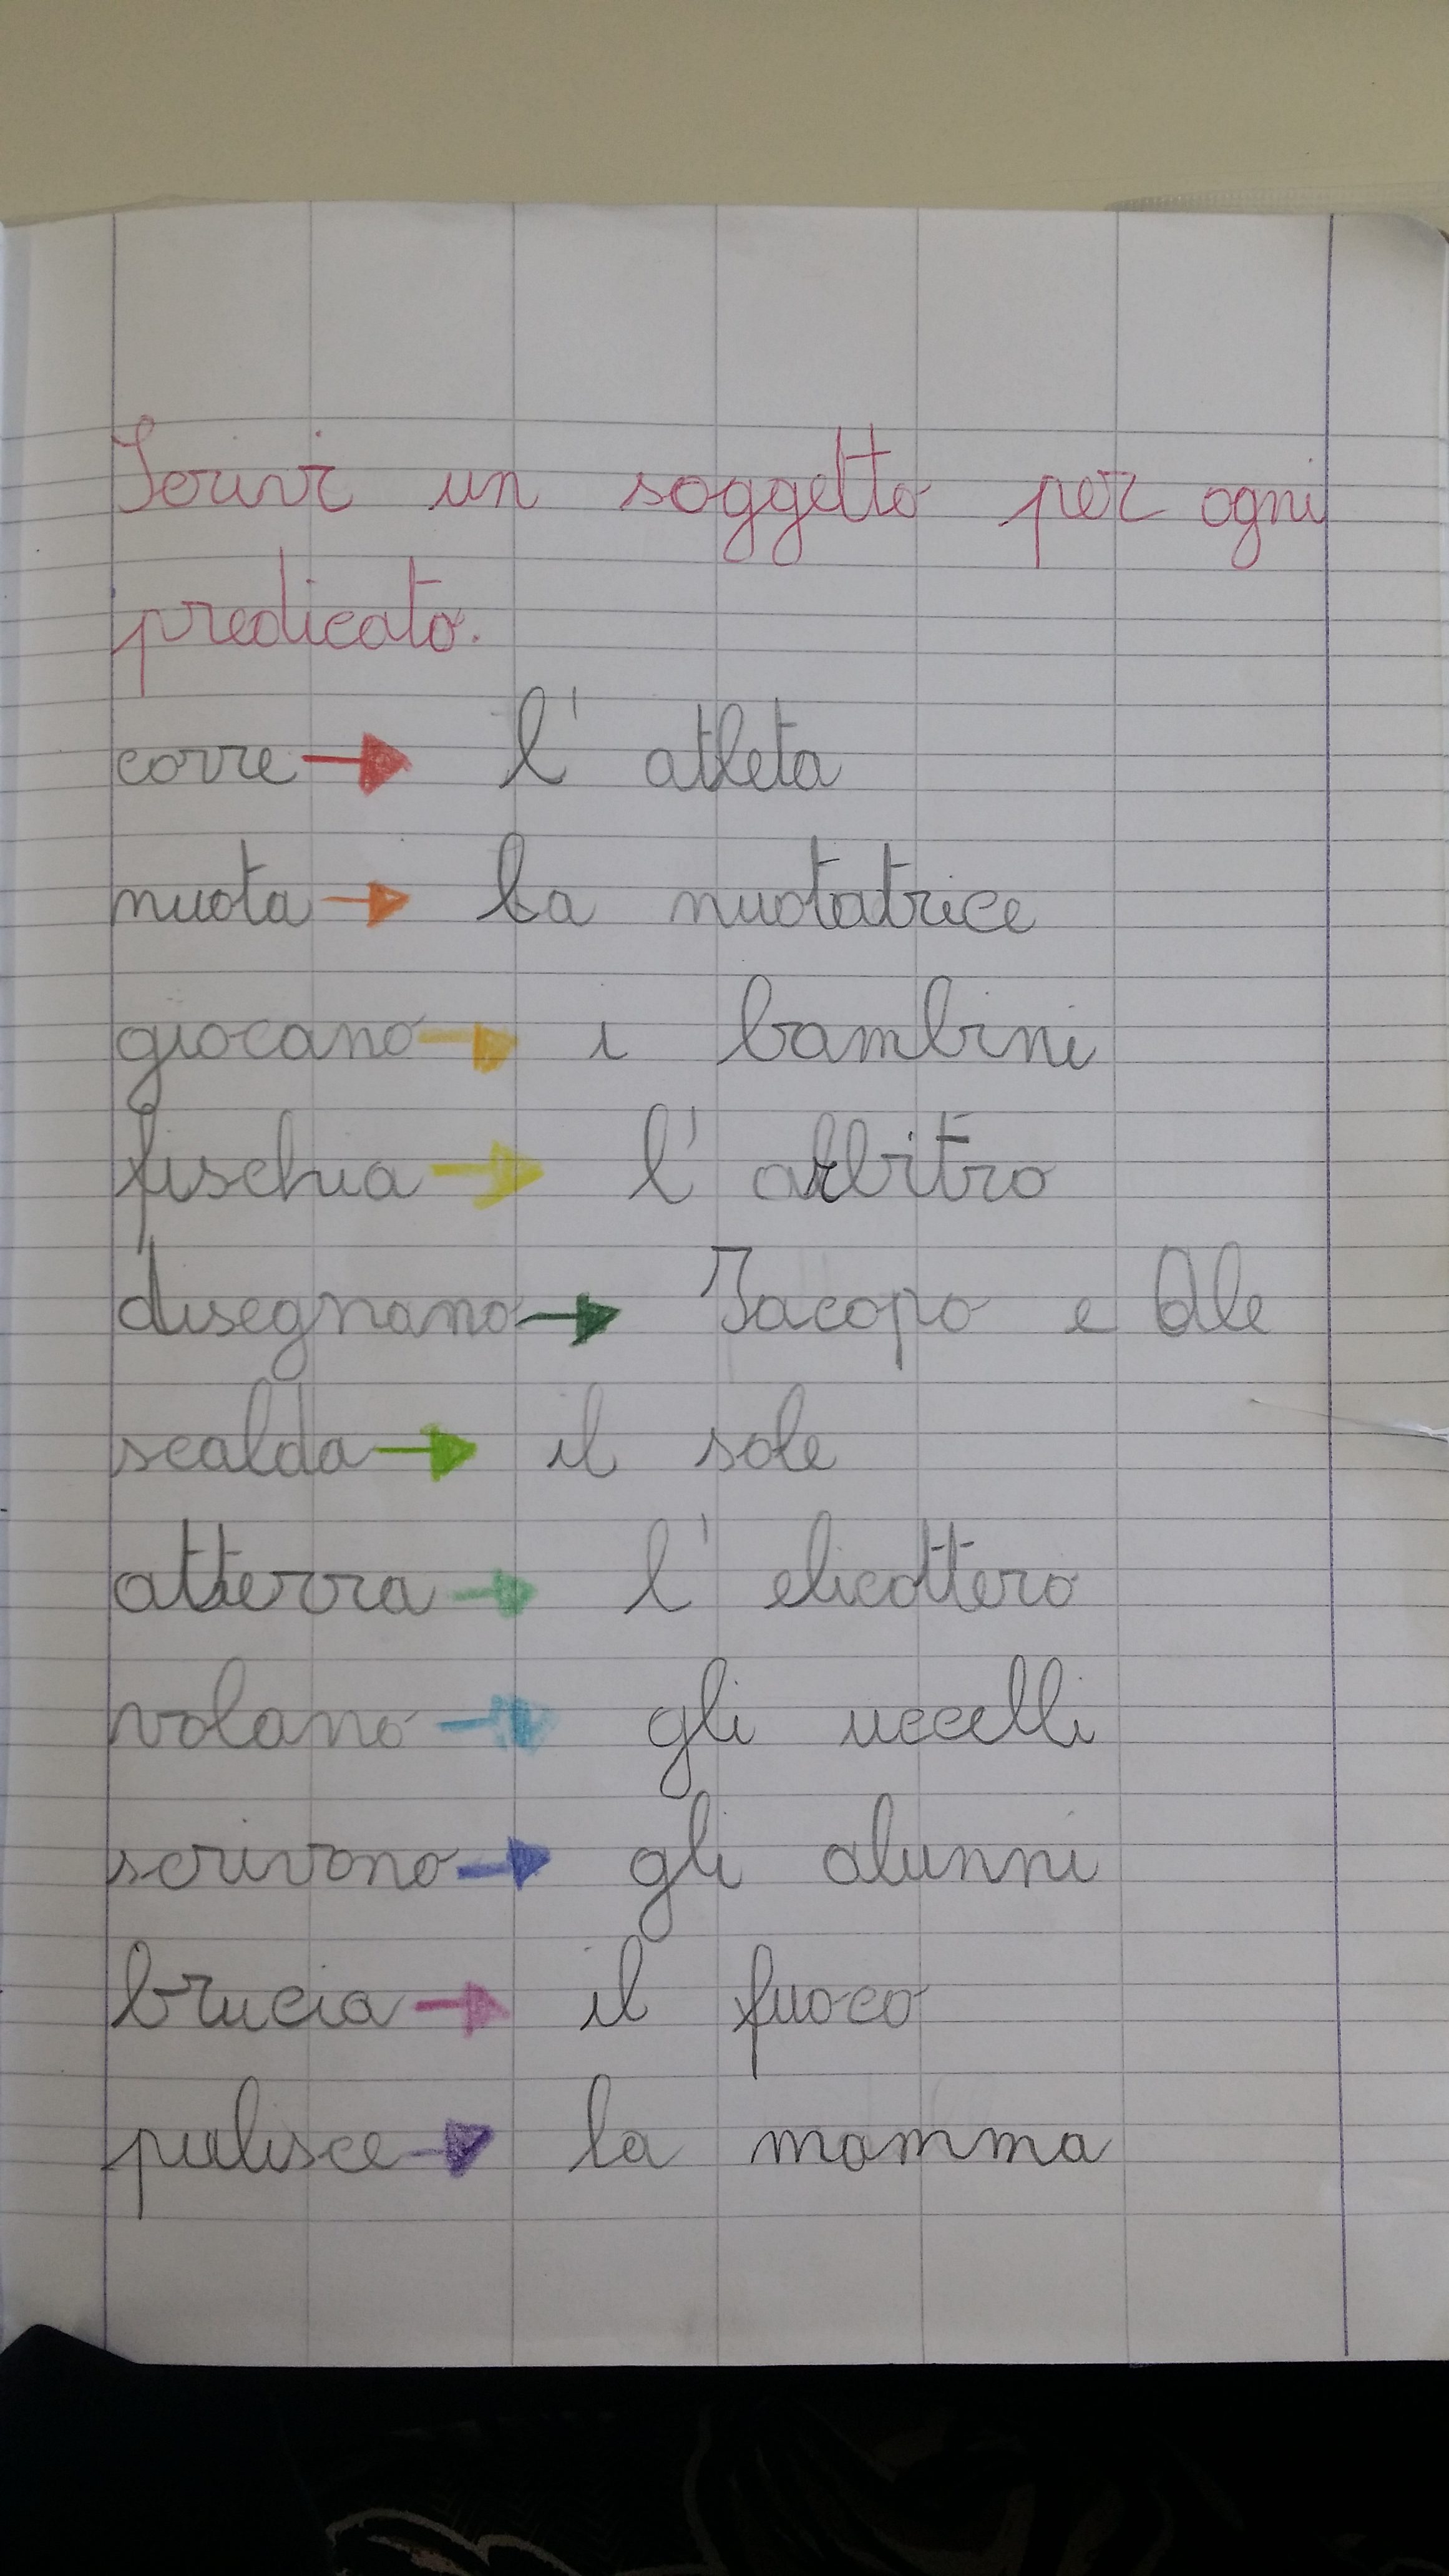 Scrivi un soggetto per ogni
predicato.
corre → l' atleta
nuota → la nuotatrice
giocano → i bambini
fischia → l' arbitro
disegnano → Jacopo e Ale
scalda → il sole
atterra → l' elicottero
volano → gli uccelli
scrivono → gli alunni
brucia → il fuoco
pulisce → la mamma